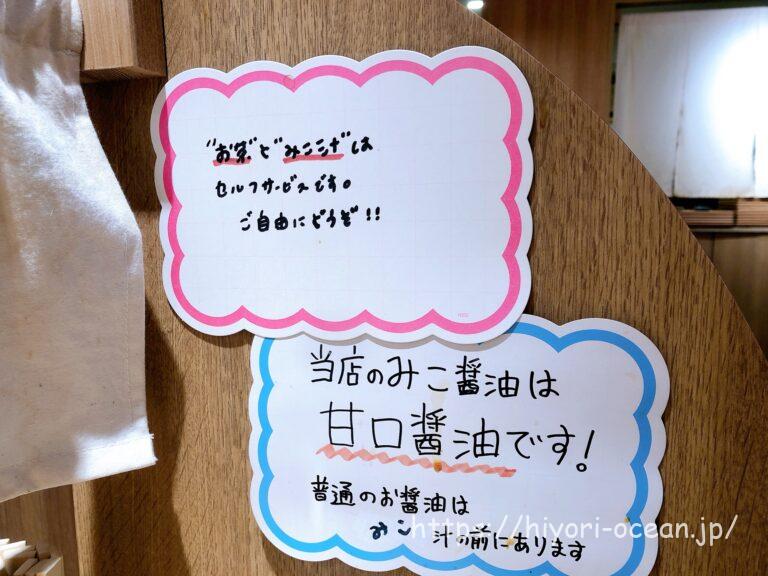 "お茶"と"みここナ"は
セルフサービスです。
ご自由にどうぞ!!
当店のみこ醤油は
甘口醤油です!
普通のお醤油は
みこ汁の前にあります
https://hiyori-ocean.jp/